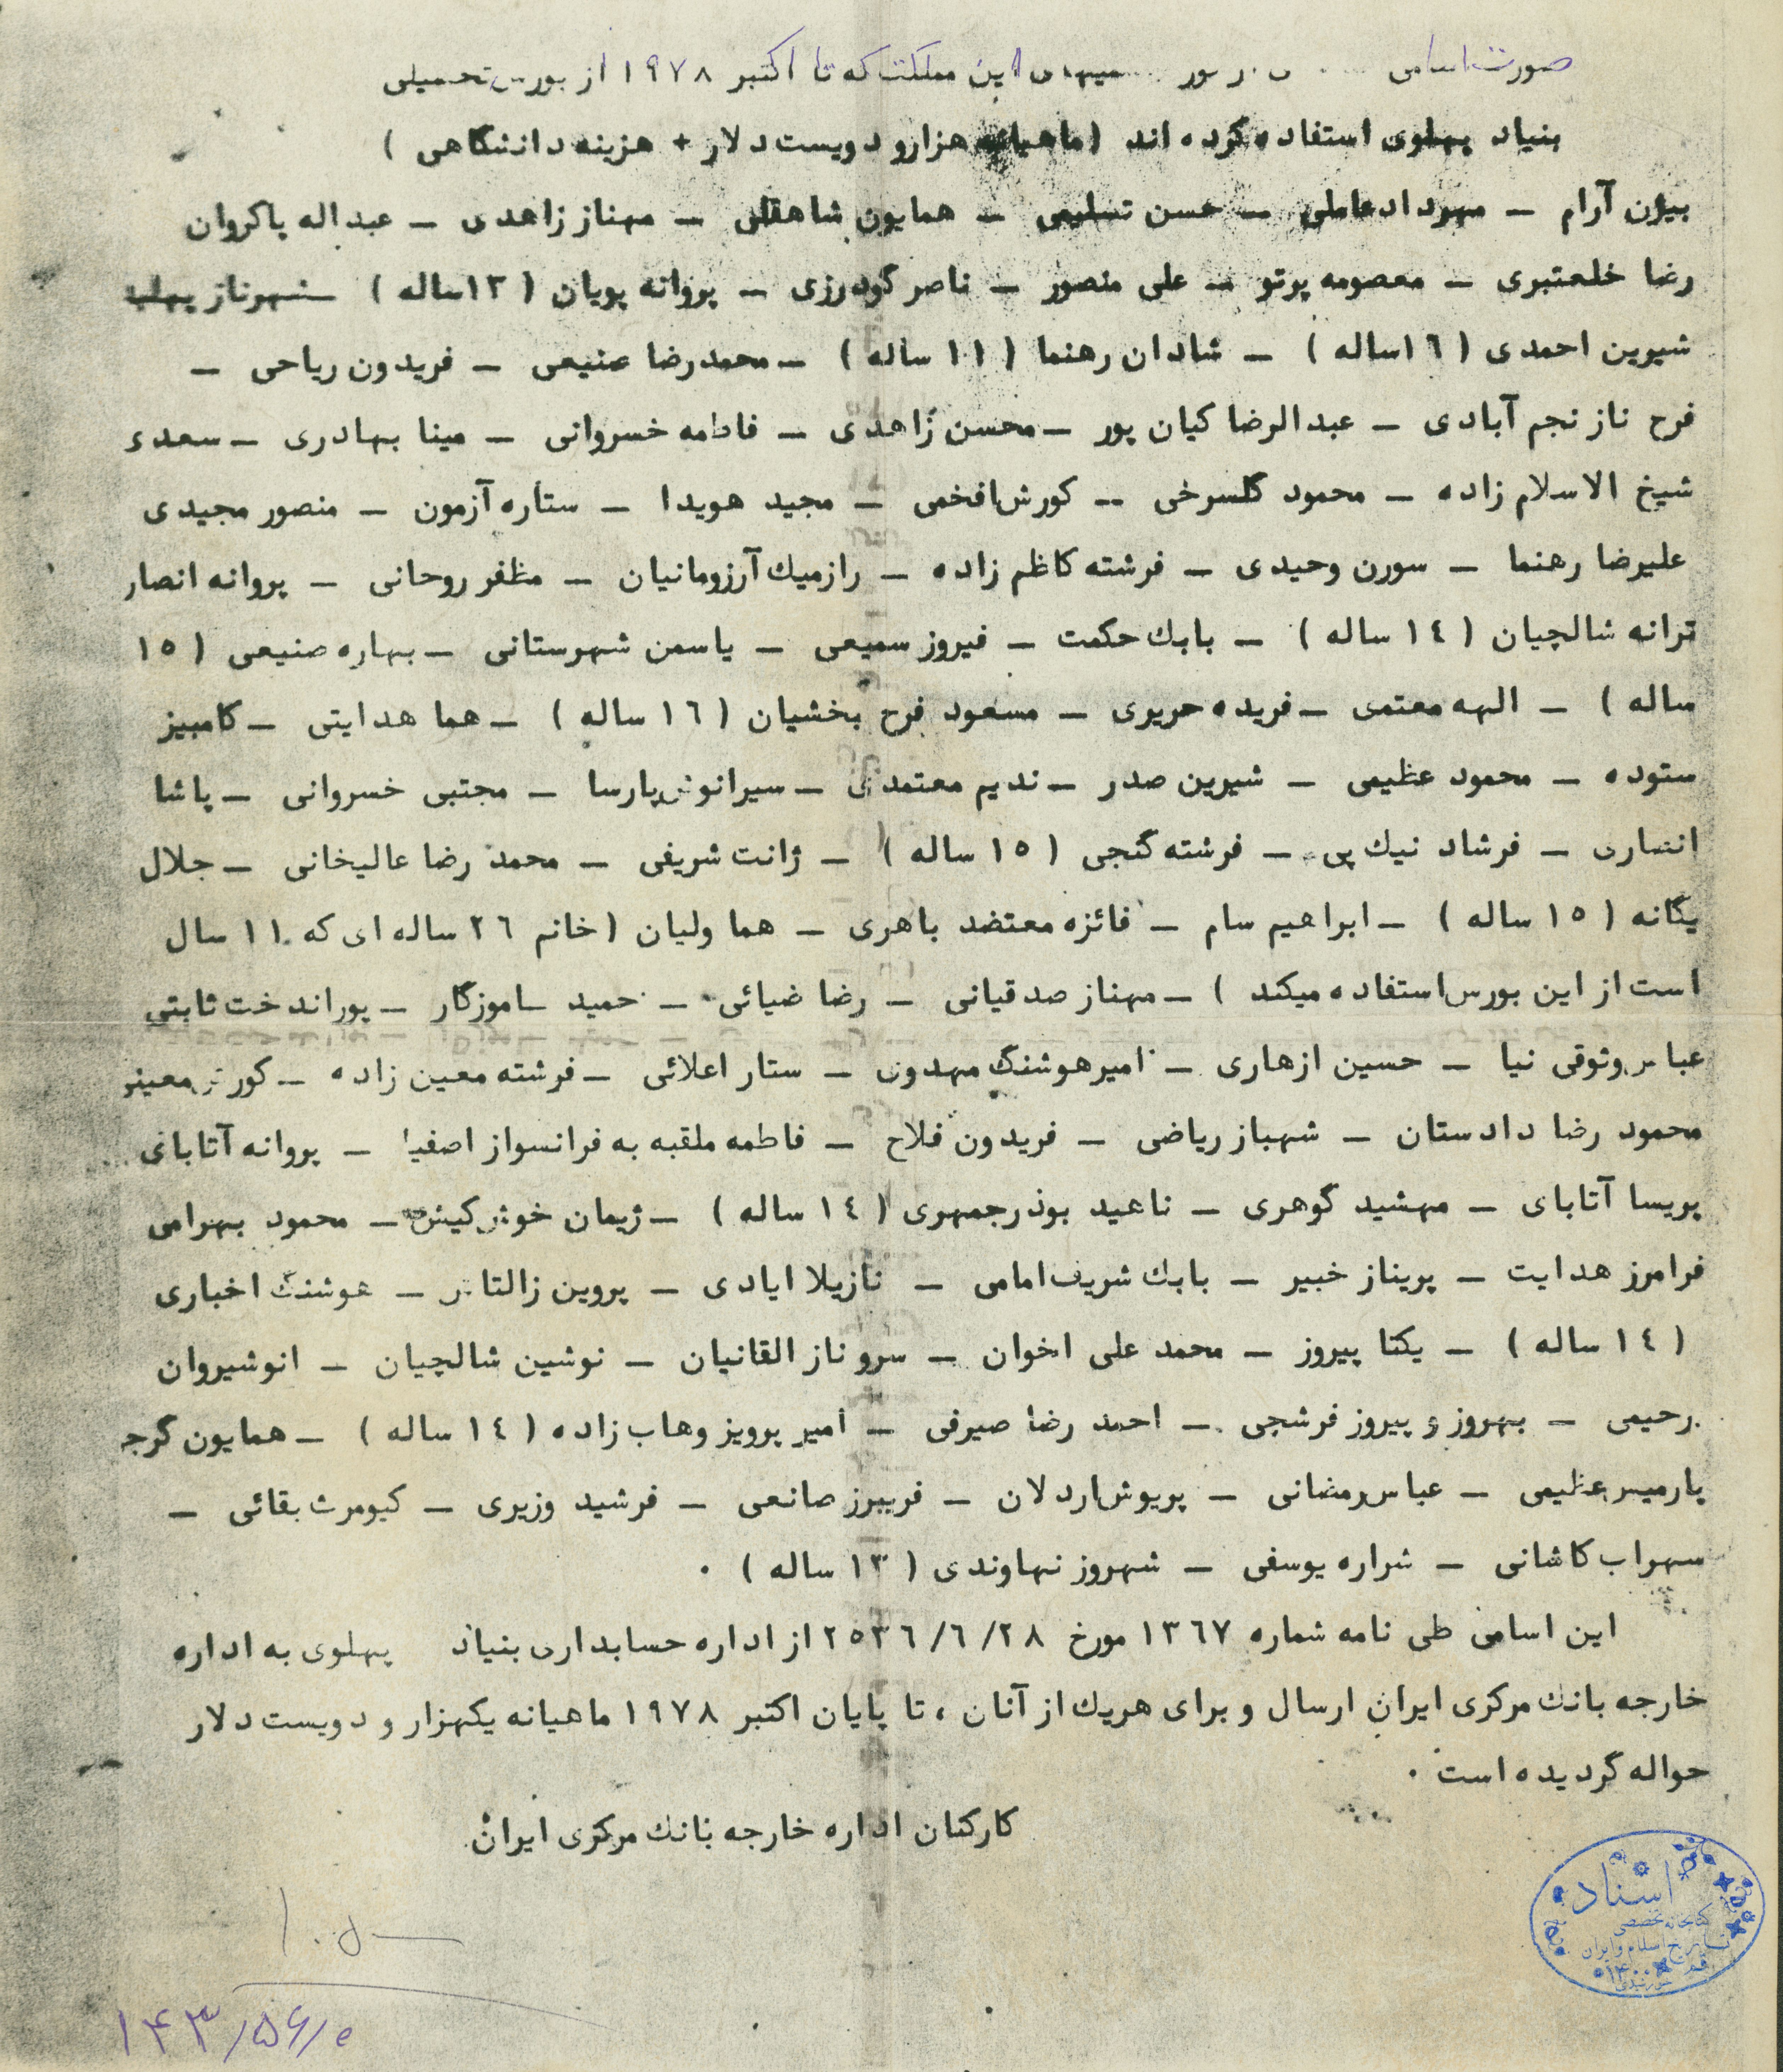 صورت اسامی ... این مملکت که تا اکتبر ۱۹۷۸ از بورس تحصیلی
بنیاد پهلوی استفاده کرده اند (ماهیانه هزار و دویست دلار + هزینه دانشگاهی )
بیژن آرام – مهرداد عاملی – حسن تسلیمی – همایون شاهقلی – مهناز زاهدی – عبداله پاکروان
رضا خلعتبری – معصومه پرتو – علی منصور – ناصر گودرزی – پروانه پویان ( ۱۳ساله ) – شهرناز پهلبد
شیرین احمدی ( ۱٦ساله ) – شادان رهنما ( ۱۱ ساله ) – محمدرضا صنیعی – فریدون ریاحی –
فرح ناز نجم آبادی – عبدالرضا کیان پور – محسن زاهدی – فاطمه خسروانی – مینا بهادری – سعد
شیخ الاسلام زاده – محمود گلسرخی -- کورش افخمی – مجید هویدا – ستاره آزمون – منصور مجیدی
علیرضا رهنما – سورن وحیدی – فرشته کاظم زاده – رازمیك آرزومانیان – مظفر روحانی – پروانه انصار
ترانه شالچیان ( ۱٤ ساله ) – بابك حکمت – فیروز سمیعی – یاسمن شهرستانی – بهاره صنیعی ( ۱٥
ساله ) – الهه معتمی – فریده حریری – مسعود فرح بخشیان ( ۱٦ ساله ) – هما هدایتی – کامبیز
ستوده – محمود عظیمی – شیرین صدر – ندیم معتمدی – سیرانوش پارسا – مجتبی خسروانی – پاشا
انصاری – فرشاد نیك پی – فرشته گنجی ( ۱٥ ساله ) – ژانت شریفی – محمد رضا عالیخانی – جلال
یگانه ( ۱٥ ساله ) – ابراهیم سام – فائزه معتضد باهری – هما ولیان ( خانم ۲٦ ساله ای که ۱۱ سال
است از این بورس استفاده میکند ) – مهناز صدقیانی – رضا ضیائی – حمید ساموزگار – پوراندخت ثابتی
عباس وثوقی نیا – حسین ازهاری – امیرهوشنگ مهدوی – ستار اعلائی – فرشته معین زاده – کورش معینو
محمود رضا دادستان – شهباز ریاضی – فریدون فلاح – فاطمه ملقبه به فرانسواز اصفیا – پروانه آتابای
پریسا آتابای – مهشید گوهری – ناهید بوذرجمهری ( ۱٤ ساله ) – ژیمان خوش کیش – محمود بهرامی
فرامرز هدایت – پریناز خبیر – بابك شریف امامی – نازیلا ایادی – پروین زالتاش – هوشنگ اخباری
( ۱٤ ساله ) – یکتا پیروز – محمد علی اخوان – سروناز القانیان – نوشین شالچیان – انوشیروان
رحیمی – بهروز و پیروز فرشچی – احمد رضا صیرفی – امیر پرویز وهاب زاده ( ۱٤ ساله ) – همایون گرج
پارمیس عظیمی – عباس رمضانی – پریوش اردلان – فریبرز صانعی – فرشید وزیری – کیومرث بقائی –
سهراب کاشانی – شراره یوسفی – شهروز نهاوندی ( ۱۳ ساله ) .
این اسامی طی نامه شماره ۱۳٦۷ مورخ ۲۸ /٦ /۲٥۳٦ از اداره حسابداری بنیاد پهلوی به اداره
خارجه بانك مرکزی ایران ارسال و برای هریك از آنان ، تا پایان اکتبر ۱۹۷۸ ماهیانه یکهزار و دویست دلار
حواله گردیده است .
کارکنان اداره خارجه بانك مرکزی ایران
اسناد
کتابخانه تخصصی
تاریخ اسلام و ایران
۱۴۳/۵۶/۰